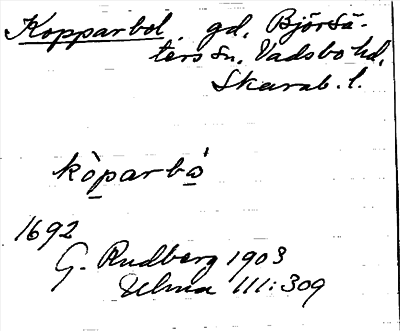 Kopparbol. gd. Björsä-
ters sn, Vadsbo hd,
Skarab. l.
kòparbó
1692
G. Rudberg 1903
Ulma 111:309